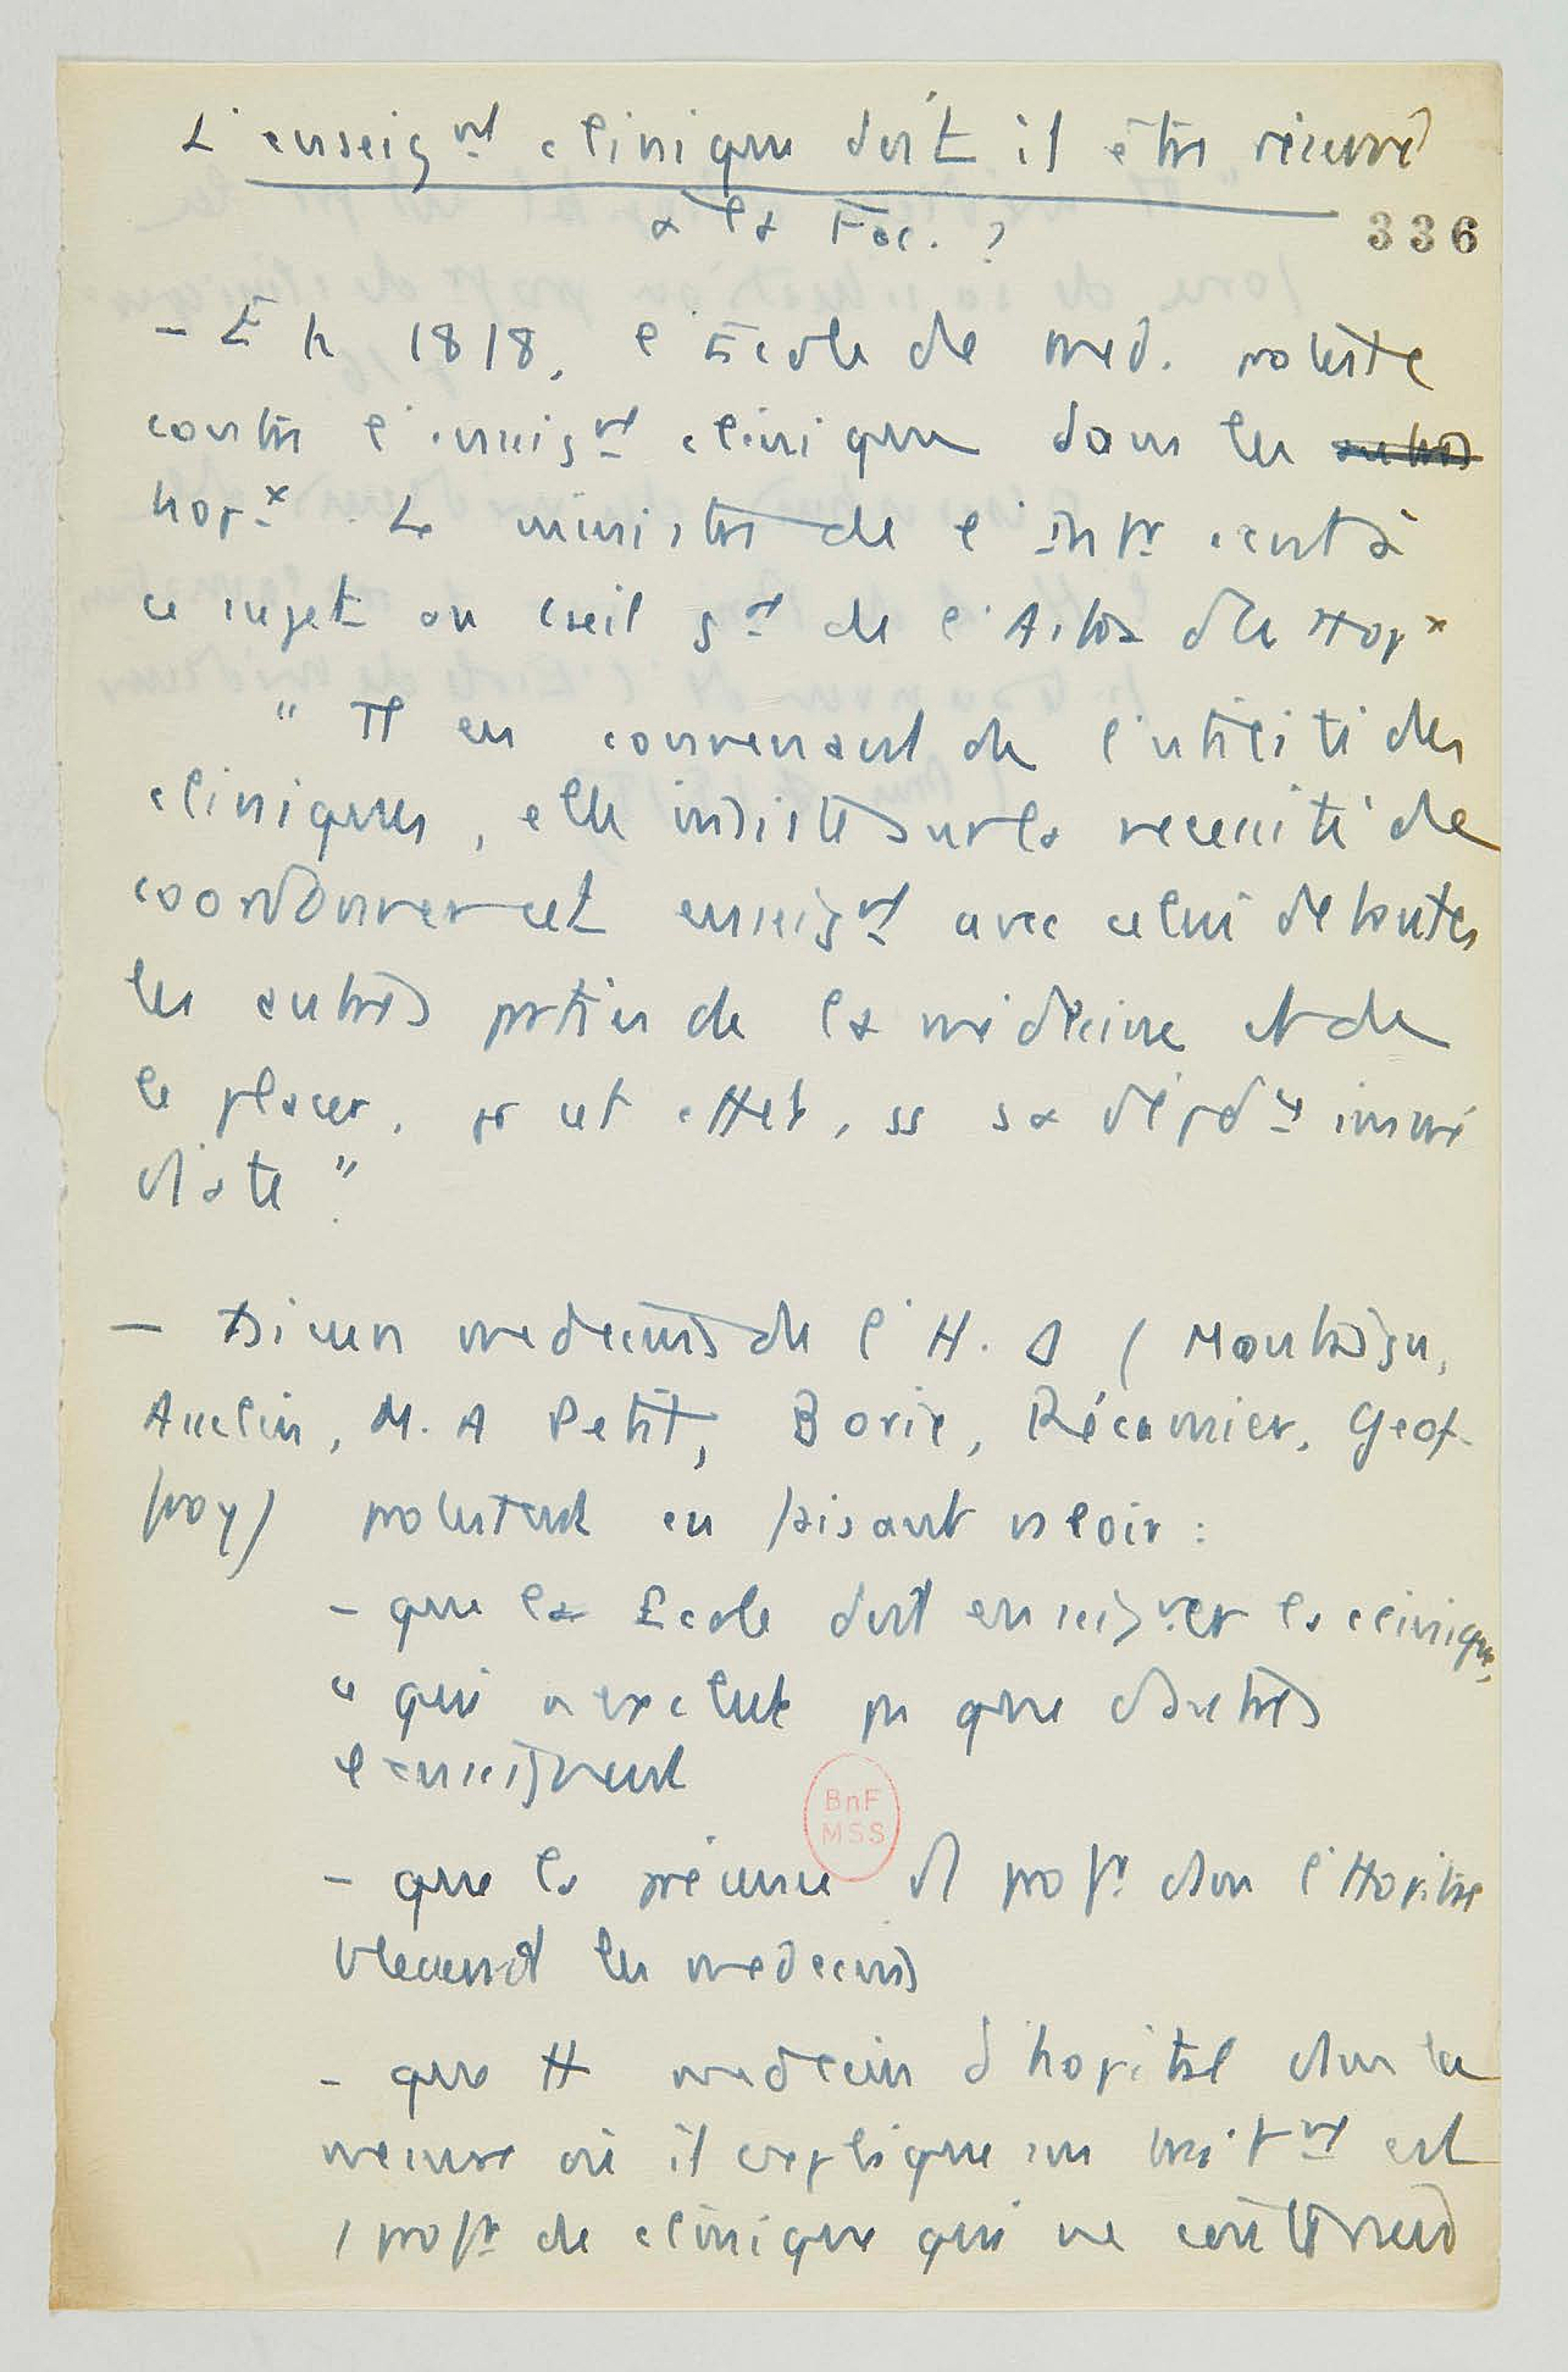 L'enseignt clinique doit il être réservé
à la Fac. ?
336
- En 1818, l'Ecole de med. proteste
contre l'enseignt clinique dans les autres
hopx. Le ministre de l'Intr écrit à
ce sujet au Cseil gal de l'Ad des Hopx
" Tt en convenant de l'utilité des
cliniques, elle insiste sur la necessité de
coordonner cet enseignt avec celui de toutes
les autres parties de la médecine et de
le placer, pr cet effet, ss sa dépdce immé
diate "
- Divers medecins de l'H. D (Montaigu,
Asselin, M. A Petit, Borie, Récamier, Geof-
froy) protestent en faisant valoir :
- que la Ecole doit enseigner la clinique,
" qui n'exclut pas que d'autres
l'enseignent
- que la présence d profr dans l'Hopital
blesserait les medecins
- que tt medecin d'hopital dans la
mesure où il explique son traitmt est
1 profr de clinique qui ne coûte rien
BnF
MSS